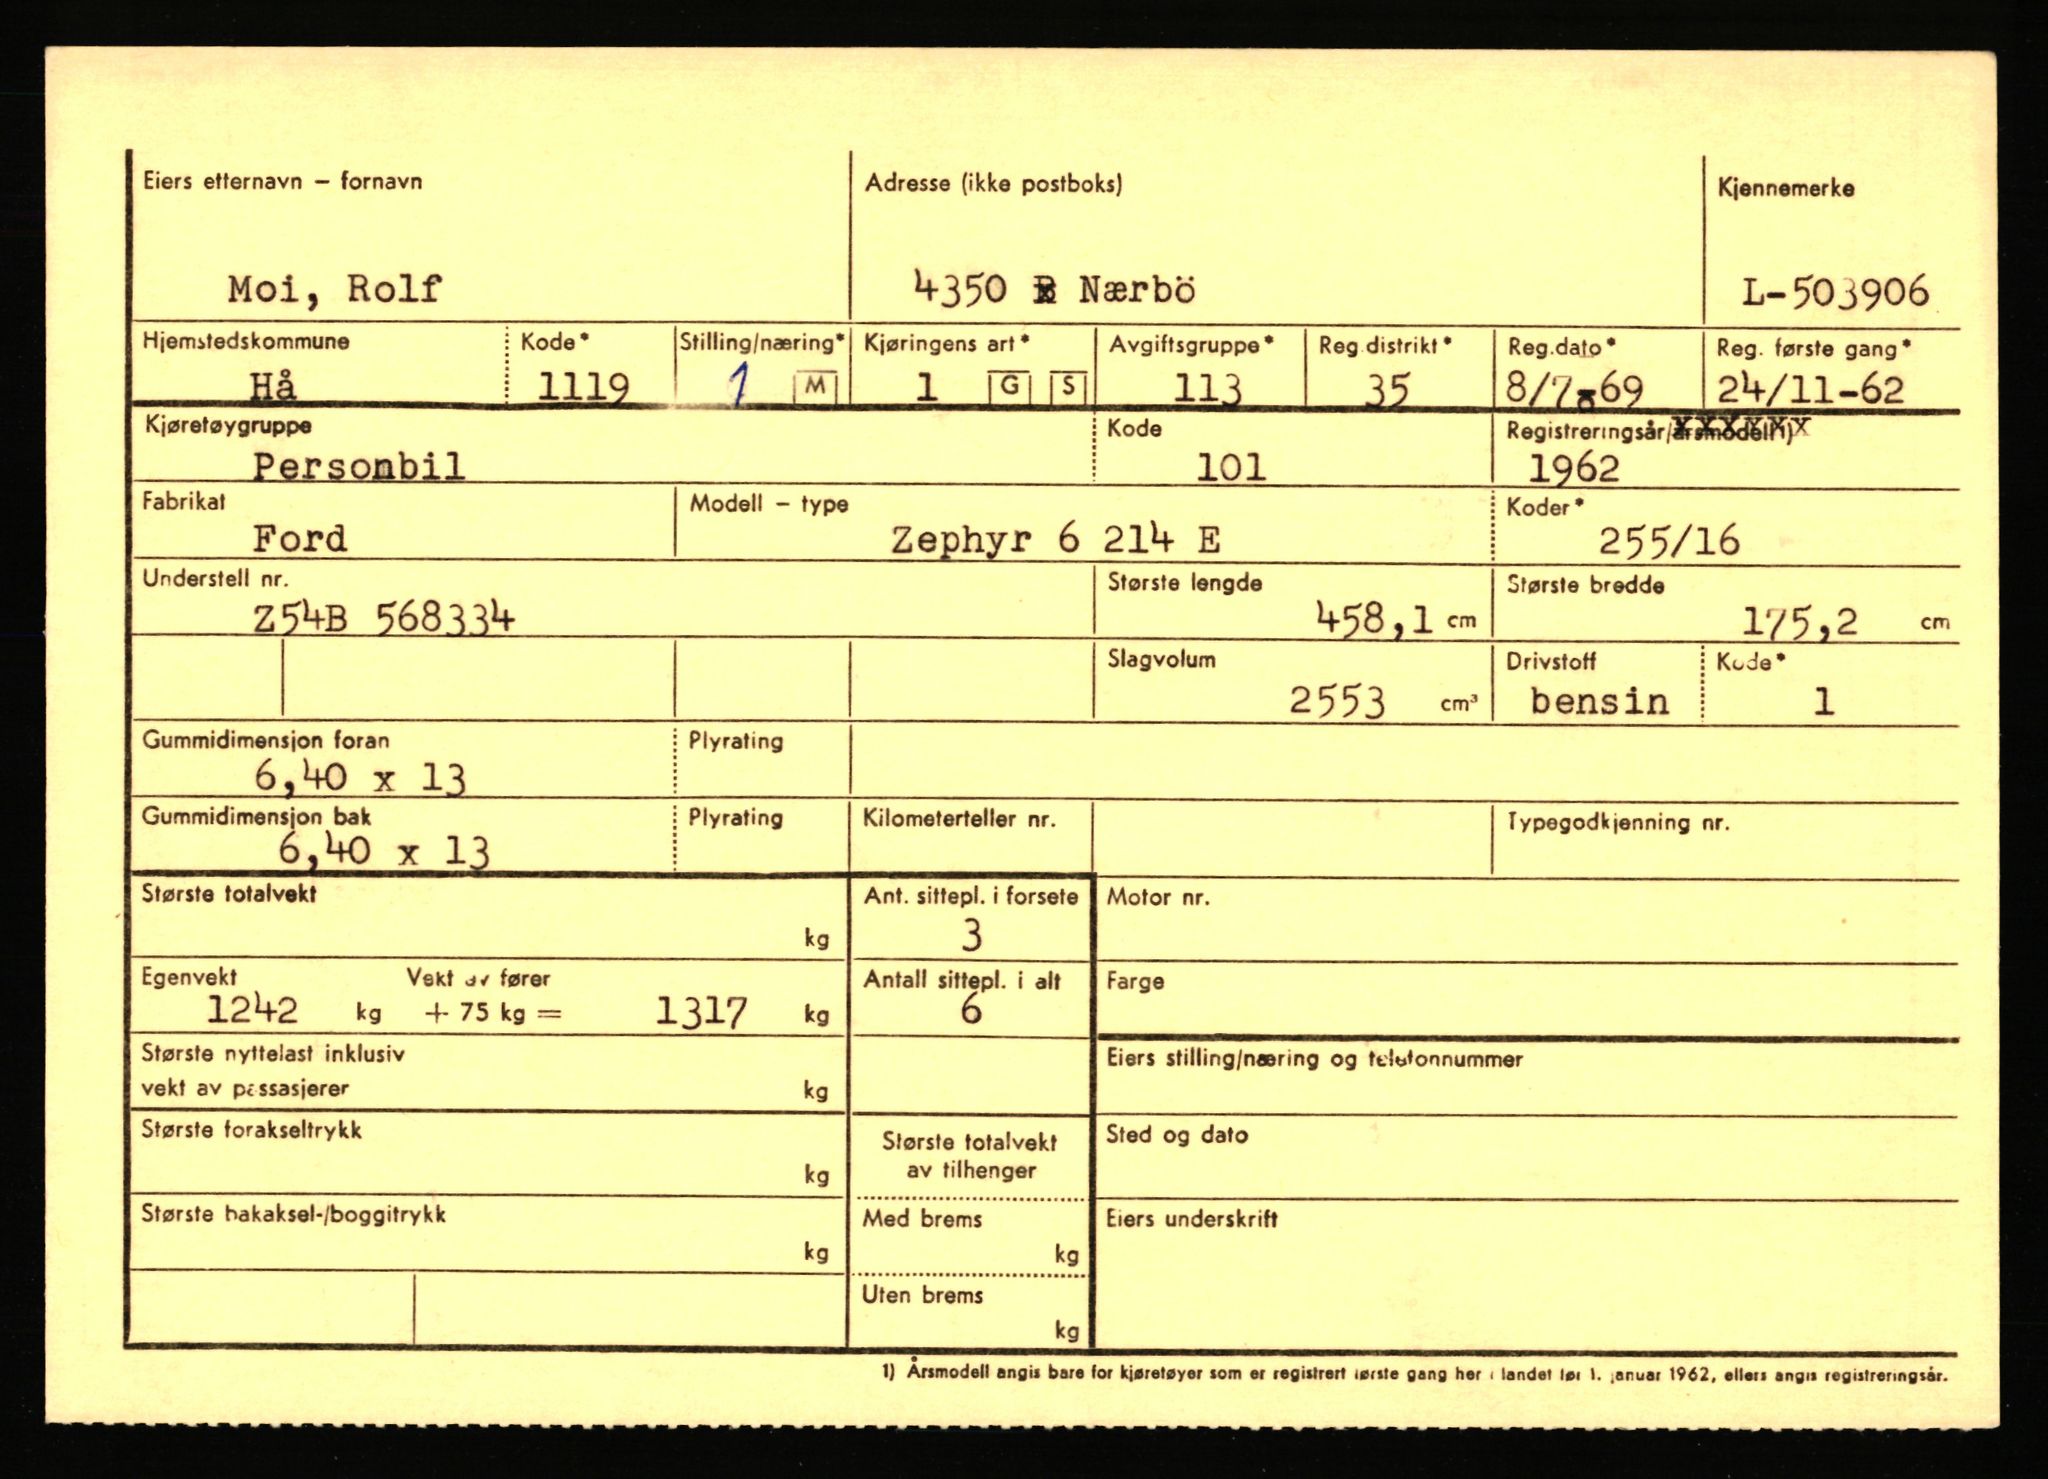 Eiers etternavn – fornavn
Adresse (ikke postboks)
Kjennemerke
Moi, Rolf
4350 Nærbö
L-503906
Hjemstedskommune
Kode*
Stilling/næring*
Kjøringens art*
Avgiftsgruppe*
Reg.distrikt*
Reg.dato*
Reg. første gang*
Hå
1119
1
M
1
G
S
113
35
8/7-69
24/11-62
Kjøretøygruppe
Kode
Registreringsår/årsmodell1)
Personbil
101
1962
Fabrikat
Modell – type
Koder*
Ford
Zephyr 6 214 E
255/16
Understell nr.
Største lengde
Største bredde
Z54B 568334
458,1 cm
175,2 cm
Slagvolum
Drivstoff
Kode*
2553 cm³
bensin
1
Gummidimensjon foran
Plyrating
6,40 x 13
Gummidimensjon bak
Plyrating
Kilometerteller nr.
Typegodkjenning nr.
6,40 x 13
Største totalvekt
Ant. sittepl. i forsete
Motor nr.
kg
3
Egenvekt
Vekt av fører
Antall sittepl. i alt
Farge
1242 kg + 75 kg = 1317 kg
6
Største nyttelast inklusiv
vekt av passasjerer
kg
Eiers stilling/næring og telefonnummer
Største forakseltrykk
kg
Største totalvekt
av tilhenger
Sted og dato
Største bakaksel-/boggitrykk
kg
Med brems
kg
Eiers underskrift
Uten brems
kg
1) Årsmodell angis bare for kjøretøyer som er registrert første gang her i landet før 1. januar 1962, ellers angis registreringsår.